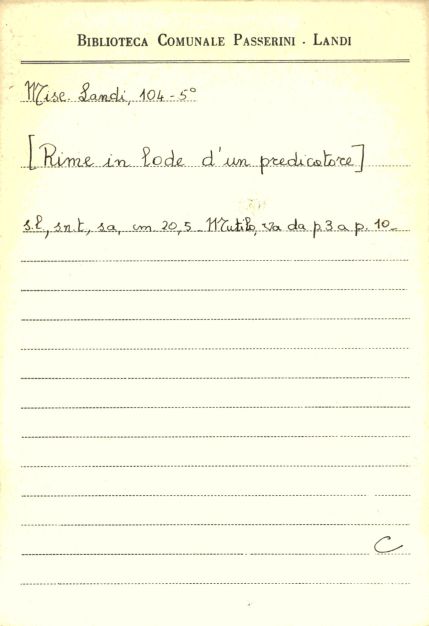 BIBLIOTECA COMUNALE PASSERINI - LANDI
Misc. Landi, 104 - 5°
[Rime in lode d'un predicatore]
s.l., s.n.t., s.a., cm. 20,5 - Mutilo, va da p. 3 a p. 10 -
C